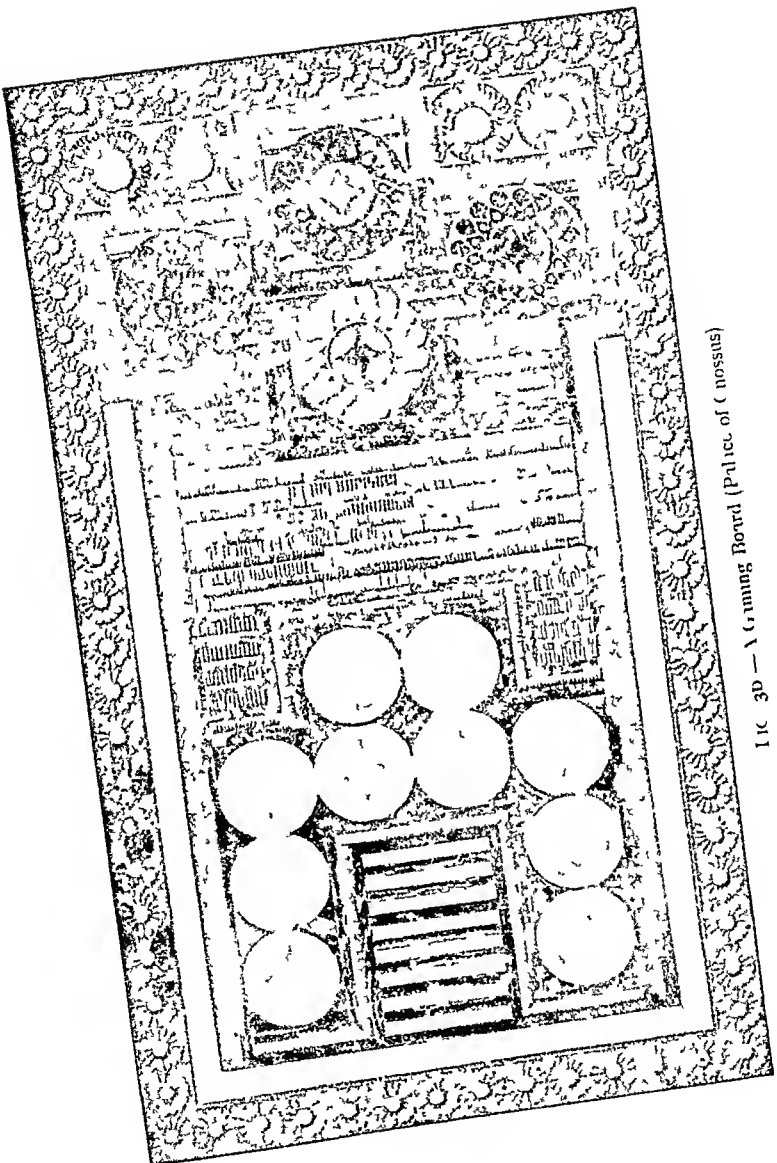 FIG 39 — A Gaming Board (Palace of Cnossus)